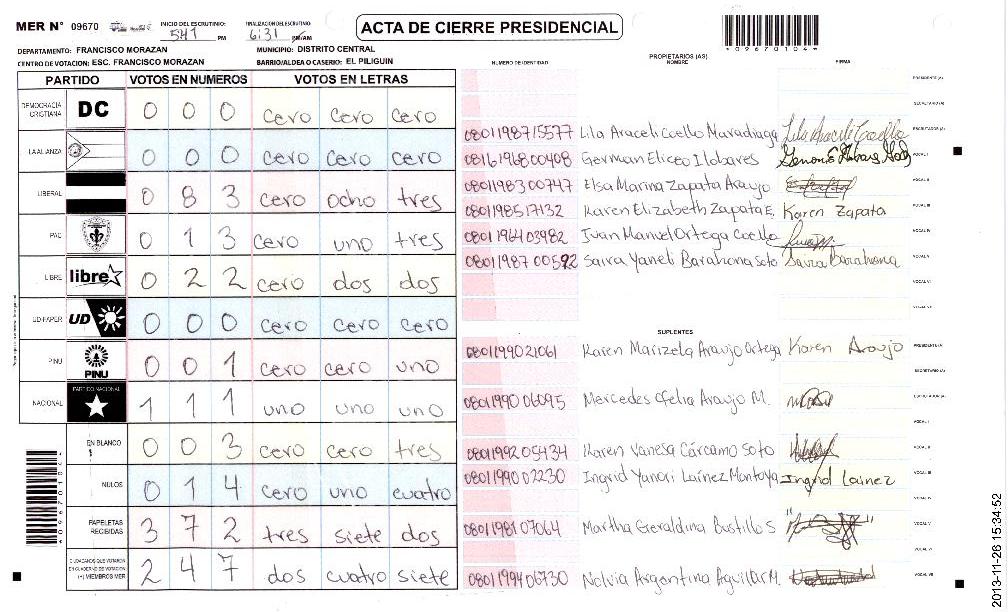 MER N° 09670 INICIO DEL ESCRUTINIO: 541 PM FINALIZACION DEL ESCRUTINIO 6:31 PM/AM ACTA DE CIERRE PRESIDENCIAL
*09670104*
DEPARTAMENTO: FRANCISCO MORAZAN MUNICIPIO: DISTRITO CENTRAL
CENTRO DE VOTACION: ESC. FRANCISCO MORAZAN BARRIO/ALDEA O CASERIO: EL PILIGUIN
NUMERO DE IDENTIDAD PROPIETARIOS (AS) NOMBRE FIRMA
PARTIDO VOTOS EN NUMEROS VOTOS EN LETRAS
PRESIDENTE (A)
DEMOCRACIA CRISTIANA DC 0 0 0 cero cero cero
SECRETARIO (A)
0801198715577 Lila Araceli Coello Maradiaga Lila Araceli Coello ESCRUTADOR (A)
LA ALIANZA 0 0 0 cero cero cero
0816196800408 German Eliceo Ilobares VOCAL I
LIBERAL 0 8 3 cero ocho tres
0801198300747 Elsa Marina Zapata Araujo VOCAL II
0801198517132 Karen Elizabeth Zapata E. Karen Zapata VOCAL III
PAC 0 1 3 cero uno tres
0801196403982 Juan Manuel Ortega Coello VOCAL IV
LIBRE libre 0 2 2 cero dos dos
0801198700592 Saira Yaneli Barahona Soto Saira Barahona VOCAL V
VOCAL VI
UD FAPER UD 0 0 0 cero cero cero
VOCAL VII
SUPLENTES
PINU PINU 0 0 1 cero cero uno
0801199021061 Karen Marizela Araujo Ortega Karen Araujo PRESIDENTE (A)
SECRETARIO (A)
NACIONAL PARTIDO NACIONAL 1 1 1 uno uno uno
0801199006095 Mercedes Ofelia Araujo M. ESCRUTADOR (A)
VOCAL I
EN BLANCO 0 0 3 cero cero tres
0801199205434 Karen Vanesa Cárcamo Soto VOCAL II
NULOS 0 1 4 cero uno cuatro
0801199002230 Ingrid Yanori Laínez Montoya Ingrid Lainez VOCAL III
VOCAL IV
PAPELETAS RECIBIDAS 3 7 2 tres siete dos
0801198107064 Martha Geraldina Bustillo S VOCAL V
VOCAL VI
CIUDADANOS QUE VOTARON EN CUADERNO DE VOTACION (+) MIEMBROS MER 2 4 7 dos cuatro siete
0801199406730 Nolvia Argentina Aguilar M. VOCAL VII
2013-11-26 15:34:52